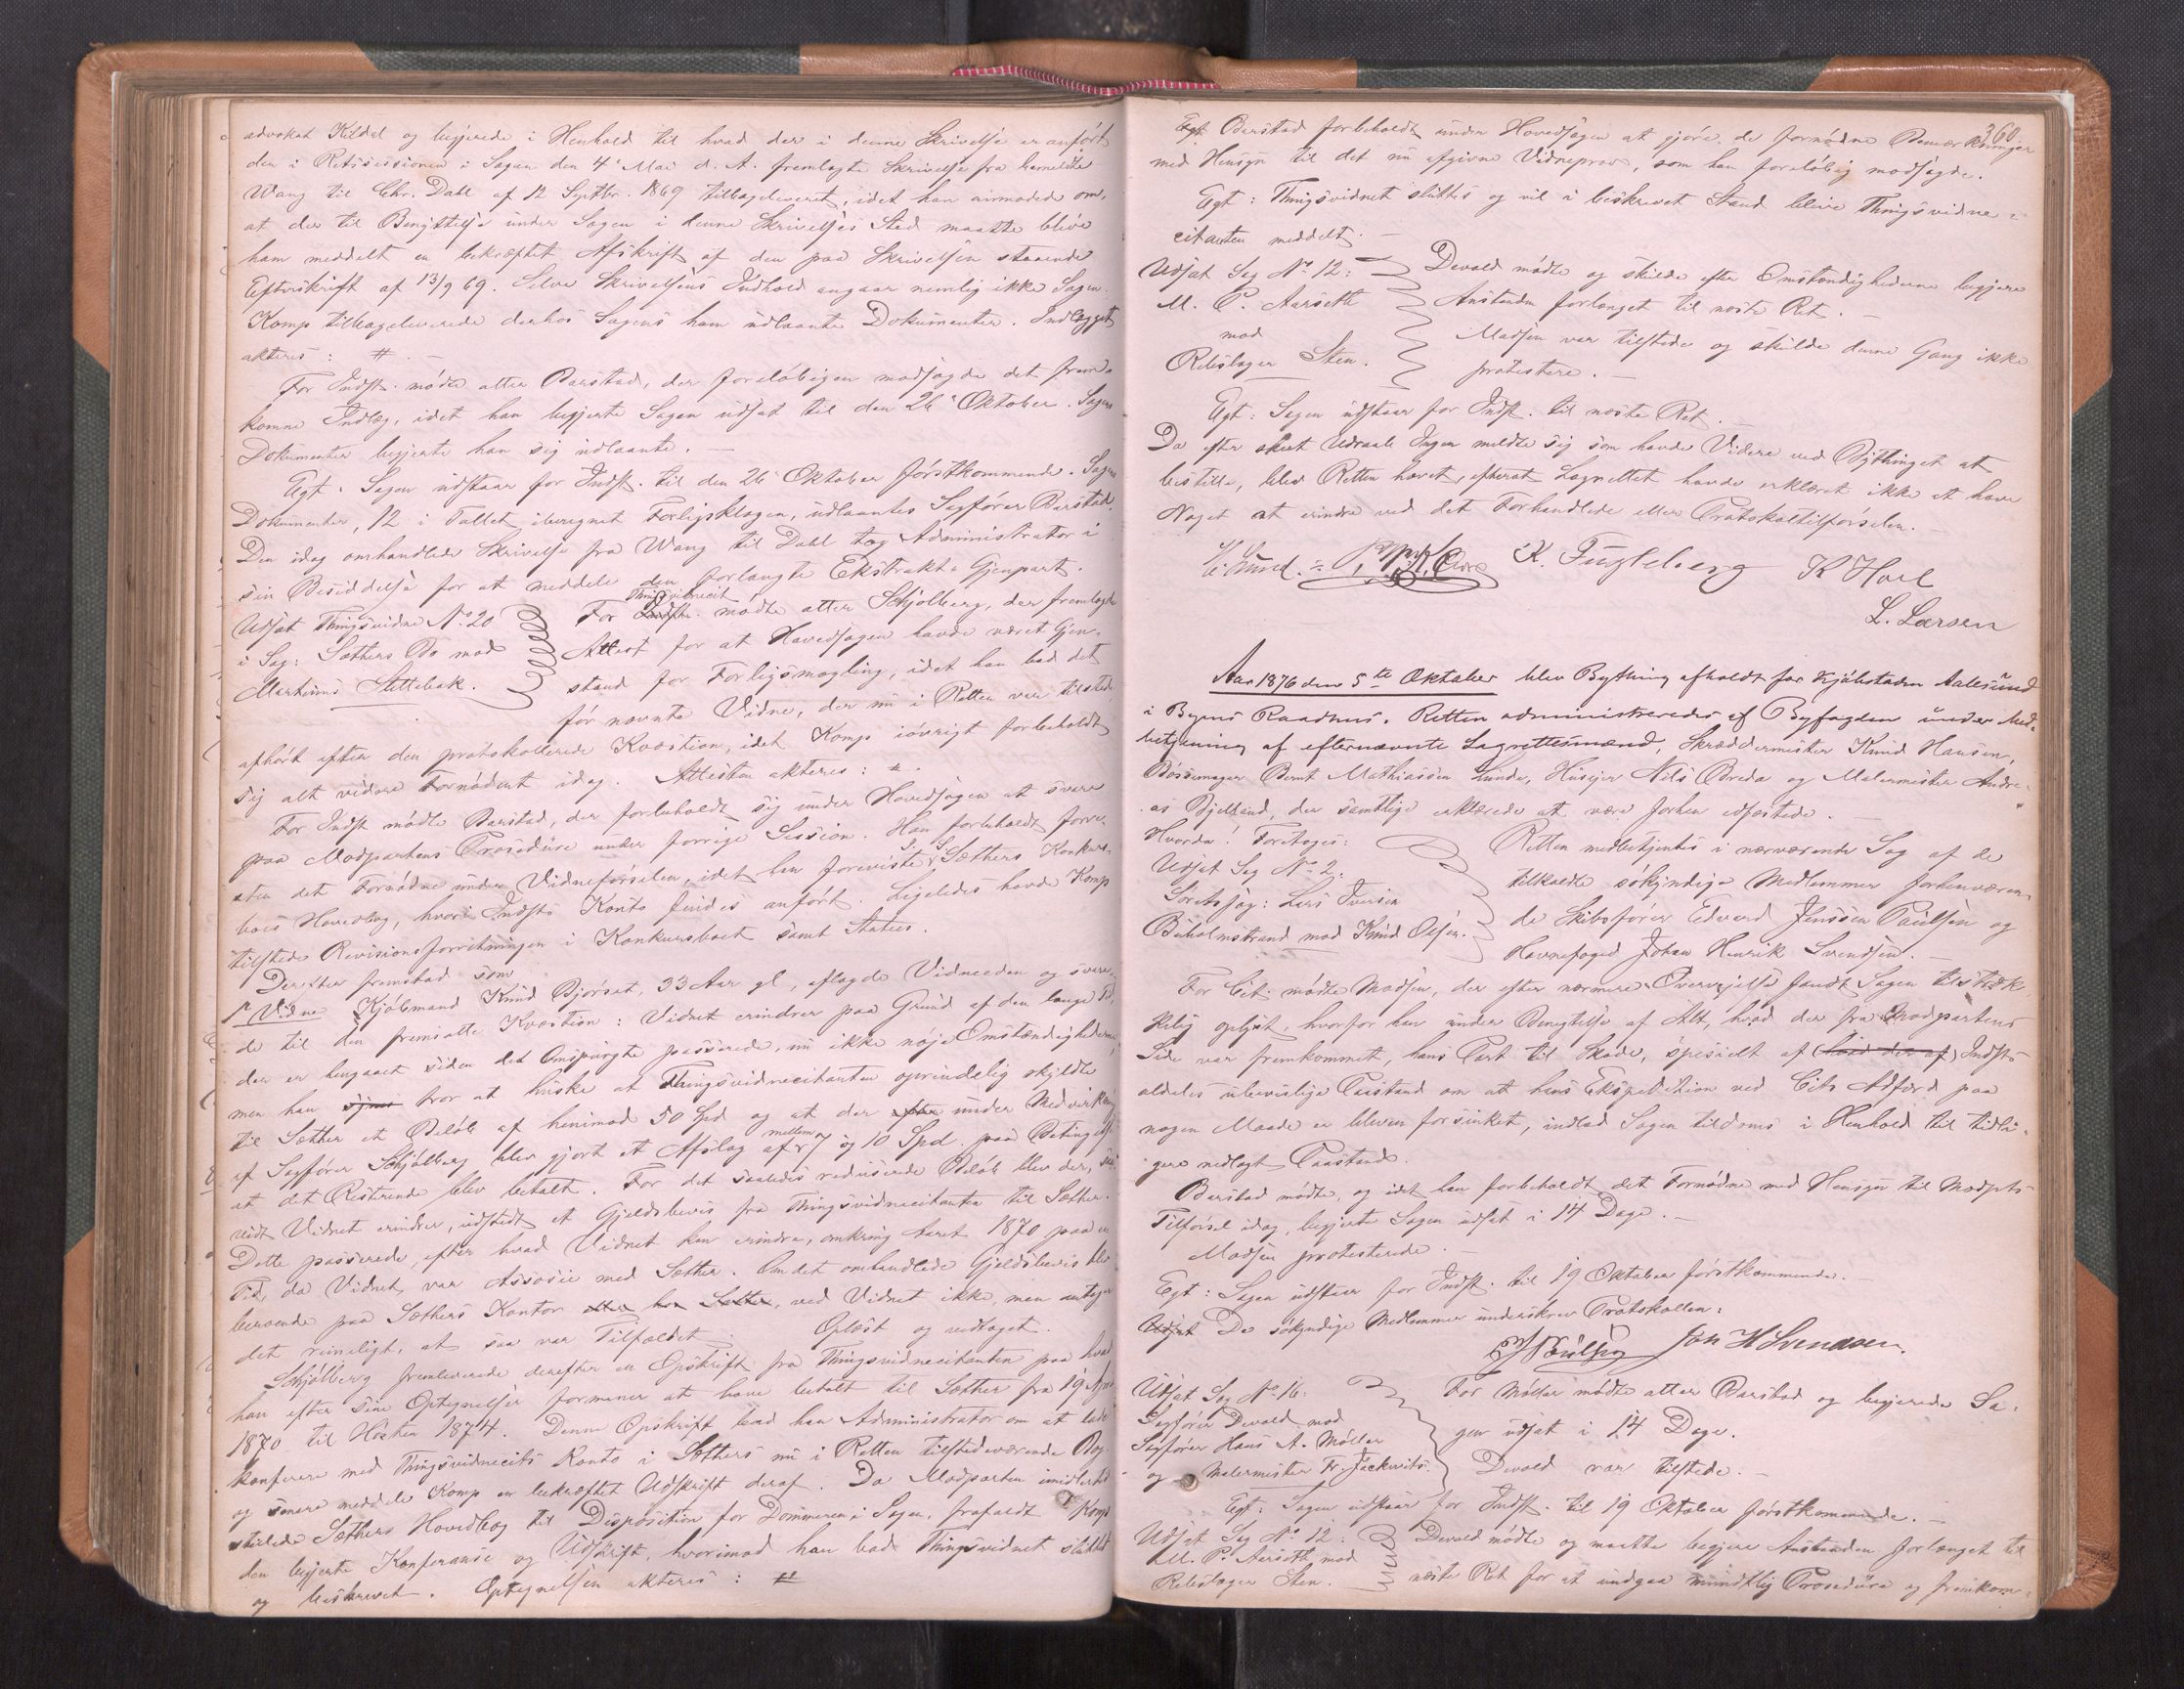 advokat Kildal og begjerede i Henhold til hvad der i denne Skrivelse er anført
den i Retssessionen i Sagen den 4de Mai d. A. fremlagte Skrivelse fra bemeldte
Wang til Chr. Dahl af 12 Septbr. 1869 tilbageleveret, idet han anmodede om,
at der til Benyttelse under Sagen i denne Skrivelses Sted maatte blive
ham meddelt en bekræftet Afskrift af den paa Skrivelsen staaende
Efterskrift af 13/9 69. Selve Skrivelsens Indhold angaar nemlig ikke Sagen.
Komp tilbageleverede derhos Sagens ham udlaante Dokumenter. Indlægget
akteres: #. —
For Indst. mødte atter Barstad, der foreløbigen modsagde det frem-
komne Indlæg, idet han begjerte Sagen udsat til den 26de Oktober. Sagens
Dokumenter begjerte han sig udlaante. —
Egt: Sagen udstaar for Indst. til den 26de Oktober førstkommende. Sagens
Dokumenter, 12 i Tallet, iberegnet Forligsklagen, udlaantes Sagfører Barstad.
Den idag omhandlede Skrivelse fra Wang til Dahl tog Administrator i
sin Besiddelse for at meddele den forlangte Ekstrakt-Gjenpart.
Udsat Thingsvidne No 20
i Sag: Sæthers Bo mod
Martinus Slettebak.
Thingsvidnecit
For Indst. mødte atter Schjølberg, der fremlagde
Attest for at Hovedsagen havde været Gjen-
stand for Forligsmægling, idet han bad det
før nævnte Vidne, der nu i Retten var tilstede,
afhørt efter den protokollerede Kvæstion, idet Komp iøvrigt forbeholdt
sig alt videre Fornødent idag. Attesten akteres: #.
For Indst mødte Barstad, der forbeholdt sig under Hovedsagen at svare
paa Modpartens Prosedure under forrige Session. Han forbeholdt forre-
sten det Fornødne under Vidneførselen, idet han foreviste S. S. Sæthers Konkurs-
boes Hovedbog, hvori Indsts Konto findes anført. Ligeledes havde Komp
tilstede Revisionsforretningen i Konkursboet samt Status.
Derefter fremstod som
1ste Vidne Kjøbmand Knud Bjørset, 33 Aar gl, aflagde Vidneeden og svare-
de til den fremsatte Kvæstion: Vidnet erindrer paa Grund af den lange Tid,
der er hengaaet siden det Omspurgte passerede, nu ikke nøje Omstændighederne,
men han synes tror at huske at Thingsvidnecitanten oprindelig skyldte
til Sæther et Beløb af henimod 50 Spd og at der efter under Medvirkning
af Sagfører Schjølberg blev gjort et Afslag af mellem 7 og 10 Spd. paa Betingelse
at det Resterende blev betalt. For det saaledes reduserede Beløb blev der, saa-
vidt Vidnet erindrer, udstedt et Gjeldsbevis fra Thingsvidnecitanten til Sæther.
Dette passerede, efter hvad Vidnet kan erindre, omkring Aaret 1870 paa en
Tid, da Vidnet var Assosie med Sæther. Om det omhandlede Gjeldsbevis blev
beroende paa Sæthers Kontor eller hos Sæther, ved Vidnet ikke, men antager
det rimeligt, at saa var Tilfældet. Oplæst og vedtaget.
Schjølberg fremleverede derefter en Opskrift fra Thingsvidnecitanten paa hvad
han efter sine Optegnelser formener at have betalt til Sæther fra 19 April
1870 til Høsten 1874. Denne Opskrift bad han Administrator om at lade
konferere med Thingsvidnecits Konto i Sæthers nu i Retten tilstedeværende Bog
og senere meddele Komp en bekræftet Udskrift deraf. Da Modparten imidlertid
stillede Sæthers Hovedbog til Disposition for Dommeren i Sagen, frafaldt Komp
den begjerte Konferanse og Udskrift, hvorimod han bad Thingsvidnet sluttet
og beskrevet. Optegnelsen akteres: #
360.
Egt. Barstad forbeholdt under Hovedsagen at gjøre de fornødne Bemærkninger
med Hensyn til det nu afgivne Vidneprov, som han foreløbig modsagde.
Egt: Thingsvidnet sluttes og vil i beskrevet Stand blive Thingsvidne-
citanten meddelt. —
Udsat Sag No 12:
M. P. Aarseth
mod
Rebslager Sten.
Devold mødte og skulde efter Omstændighederne begjere
Anstanden forlænget til næste Ret. —
Madsen var tilstede og skulde denne Gang ikke
protestere. —
Egt: Sagen udstaar for Indst. til næste Ret. —
Da efter skeet Udraab Ingen meldte sig som havde Videre ved Bythinget at
bestille, blev Retten hævet, efterat Lagrettet havde erklæret ikke at have
Noget at erindre ved det Forhandlede eller Protokoltilførselen. —
K. Tingleberg K Hoel
L. Larsen
Aar 1876 den 5te Oktober blev Bything afholdt for Kjøbstaden Aalesund
i Byens Raadhus. Retten administreredes af Byfogden under Med-
betjening af efternævnte Lagrettesmænd, Skræddermester Knud Hansen,
Bøssemager Bernt Mathiassen Lunde, Husejer Nils Breda og Malermester Andre-
as Bjelland, der samtlige erklærede at være forhen edfæstede. —
Hvorda! Foretoges:
Udsat Sag No 2:
Søretssag: Lars Iversen
Buholmstrand mod Knud Olsen.
Retten medbetjentes i nærværende Sag af de
tilkaldte søkyndige Medlemmer forhenværen-
de Skibsfører Edvard Jenssen Paulsen og
Havnefoged Johan Henrik Svendsen. —
For Cit. mødte Madsen, der efter nærmere Overvejelse fandt Sagen tilstræk-
kelig oplyst, hvorfor han under Benegtelse af Alt, hvad der fra Modpartens
Side var fremkommet, hans Part til Skade, spesielt af (hvad der af) Indsts
aldeles ubevislige Paastand om at hans Ekspedition ved Cits Adfærd paa
nogen Maade er bleven forsinket, indlod Sagen tildoms i Henhold til tidli-
gere nedlagt Paastand.
Barstad mødte, og idet han forbeholdt det Fornødne med Hensyn til Modpts
Tilførsel idag, begjerte Sagen udsat i 14 Dage. —
Madsen protesterede. —
Egt: Sagen udstaar for Indst. til 19 Oktober førstkommende.
Udsat De søkyndige Medlemmer underskrev Protokollen:
EJ Paulsen Joh H Svendsen.
Udsat Sag No 16:
Sagfører Devold mod
Sagfører Hans A. Møller
og Malermester Fr. Jackwitz.
For Møller mødte atter Barstad og begjerede Sa-
gen udsat i 14 Dage.
Devold var tilstede. —
Egt: Sagen udstaar for Indst. til 19 Oktober førstkommende. —
Udsat Sag No 12:
M. P. Aarseth mod
Rebslager Sten.
Devold mødte og maatte begjere Anstanden forlænget til
næste Ret for at undgaa mundtlig Prosedure og fremkom-